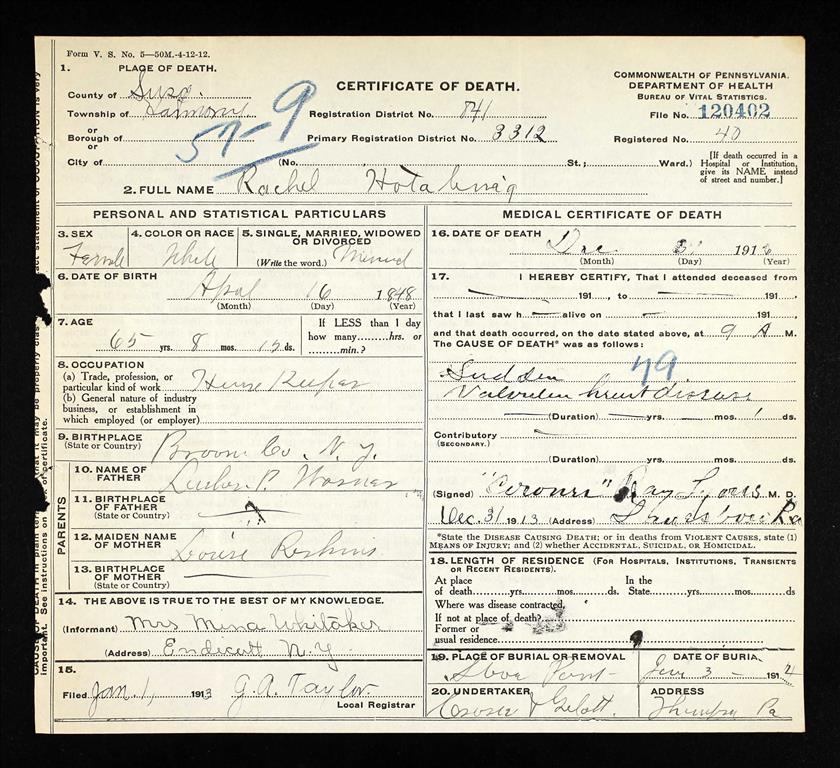 Form V. S. No. 5—50M.-4-12-12.
1. PLACE OF DEATH.
County of Susq.
Township of
or
Borough of
or
City of
57-9
CERTIFICATE OF DEATH.
Registration District No. 841
Primary Registration District No. 3312
(No. St.; Ward.)
COMMONWEALTH OF PENNSYLVANIA.
DEPARTMENT OF HEALTH
BUREAU OF VITAL STATISTICS.
File No. 120402
Registered No. 40
[If death occurred in a Hospital or Institution, give its NAME instead of street and number.]
2. FULL NAME Rachel
PERSONAL AND STATISTICAL PARTICULARS
3. SEX
Female
4. COLOR OR RACE
White
5. SINGLE, MARRIED, WIDOWED
OR DIVORCED
(Write the word.) Married
6. DATE OF BIRTH
April 16 1848
(Month) (Day) (Year)
7. AGE
65 yrs. 8 mos. 15 ds.
If LESS than 1 day
how many........hrs. or
........min.?
8. OCCUPATION
(a) Trade, profession, or
particular kind of work House Keeper
(b) General nature of industry
business, or establishment in
which employed (or employer)
9. BIRTHPLACE
(State or Country) Broom Co. N. Y.
PARENTS
10. NAME OF
FATHER P. Warner
11. BIRTHPLACE
OF FATHER
(State or Country) ?
12. MAIDEN NAME
OF MOTHER Louise
13. BIRTHPLACE
OF MOTHER
(State or Country)
14. THE ABOVE IS TRUE TO THE BEST OF MY KNOWLEDGE.
(Informant) Mrs Mina Whitaker
(Address) Endicott N.Y
15.
Filed Jan. 1, 1913 G. A. Taylor
Local Registrar
MEDICAL CERTIFICATE OF DEATH
16. DATE OF DEATH
Dec 31 1913
(Month) (Day) (Year)
17. I HEREBY CERTIFY, That I attended deceased from
191 , to 191 ,
that I last saw h alive on 191 ,
and that death occurred, on the date stated above, at 9 A M.
The CAUSE OF DEATH* was as follows:
79
Sudden
Valvular heart disease
(Duration) yrs. mos. 1 ds.
Contributory
(SECONDARY.)
(Duration) yrs. mos. ds.
(Signed) "Coroner" Ray M. D.
Dec. 31 1913 (Address) Pa
*State the DISEASE CAUSING DEATH; or in deaths from VIOLENT CAUSES, state (1)
MEANS OF INJURY; and (2) whether ACCIDENTAL, SUICIDAL, OR HOMICIDAL.
18. LENGTH OF RESIDENCE (FOR HOSPITALS, INSTITUTIONS, TRANSIENTS
OR RECENT RESIDENTS).
At place
of death yrs. mos. ds
In the
State yrs. mos. ds
Where was disease contracted,
If not at place of death?
Former or
usual residence
19. PLACE OF BURIAL OR REMOVAL
DATE OF BURIAL
Jan 3 - 1914
20. UNDERTAKER
Gelatt
ADDRESS
Pa